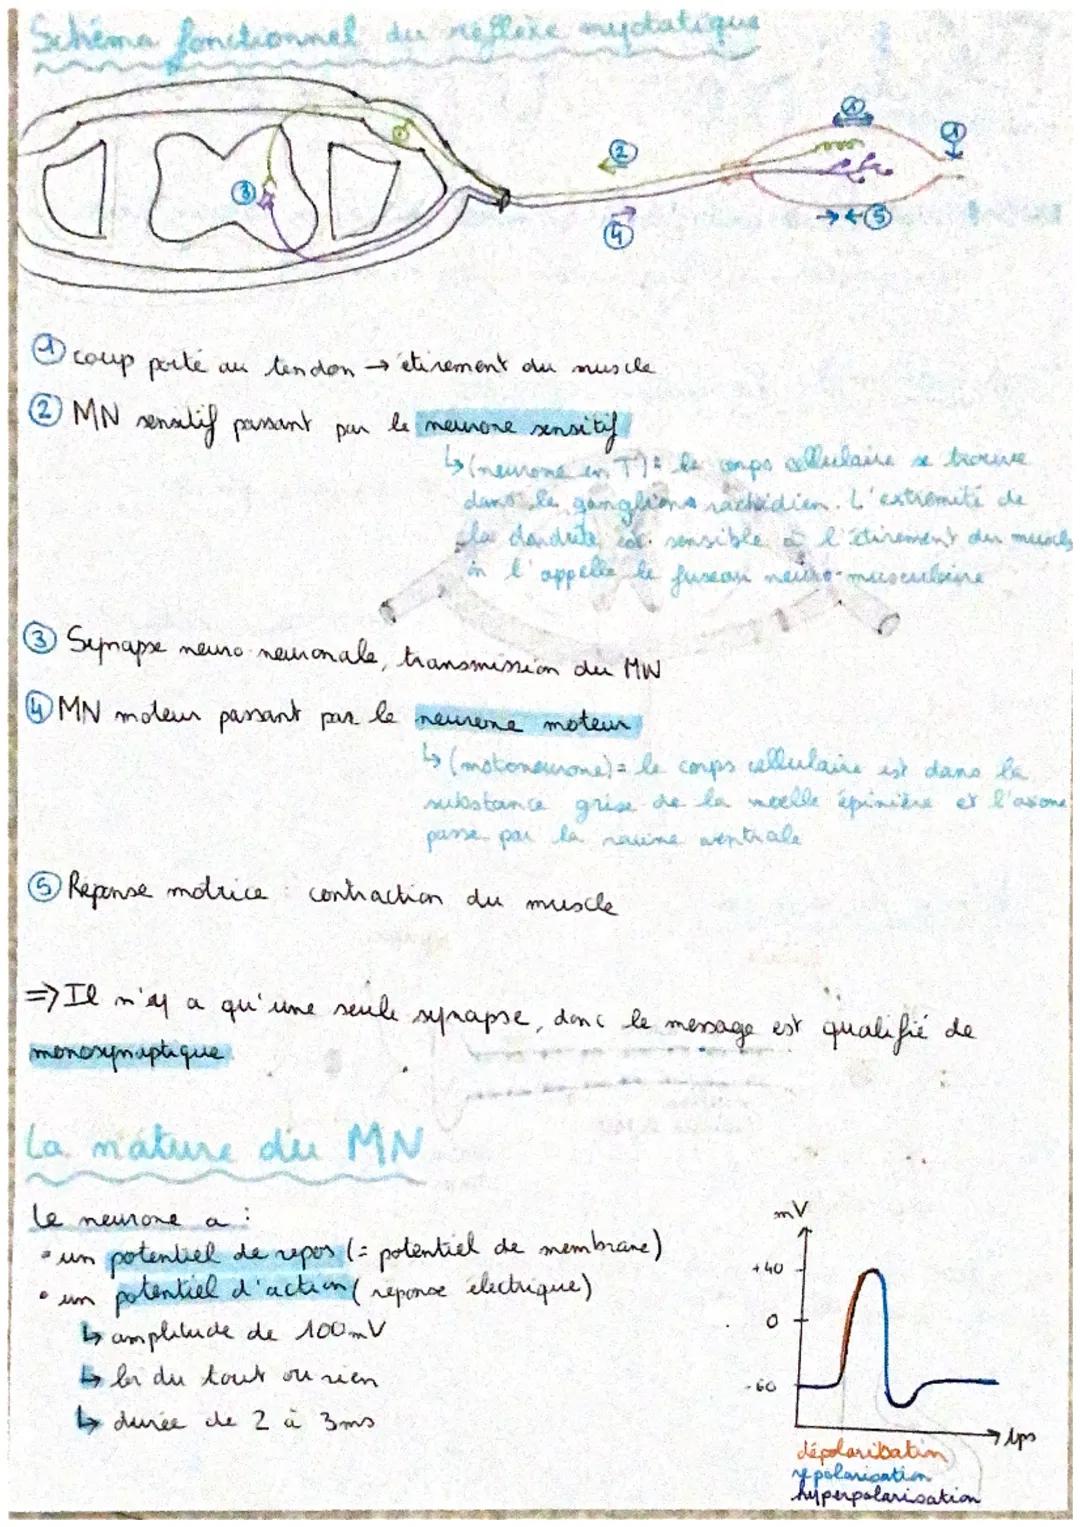 Schéma fonctionnel du réflexe myotatique
1
1
2
3
4
5
① coup porté au tendon → étirement du muscle
② MN sensitif passant par le neurone sensitif
↳ (neurone en T) = le corps cellulaire se trouve
dans le ganglion rachidien. L'extrémité de
la dendrite est sensible à l'étirement du muscle
on l'appelle le fuseau neuro-musculaire
③ Synapse neuro neuronale, transmission du MN
④ MN moteur passant par le neurone moteur
↳ (motoneurone) = le corps cellulaire est dans la
substance grise de la moelle épinière et l'axone
passe par la racine ventrale
⑤ Réponse motrice : contraction du muscle
⇒ Il n'y a qu'une seule synapse, donc le message est qualifié de
monosynaptique
La nature du MN
Le neurone a :
• un potentiel de repos (= potentiel de membrane)
• un potentiel d'action (réponse électrique)
↳ amplitude de 100mV
↳ loi du tout ou rien
↳ durée de 2 à 3ms
mV
+40
0
-60
tps
dépolarisation
repolarisation
hyperpolarisation